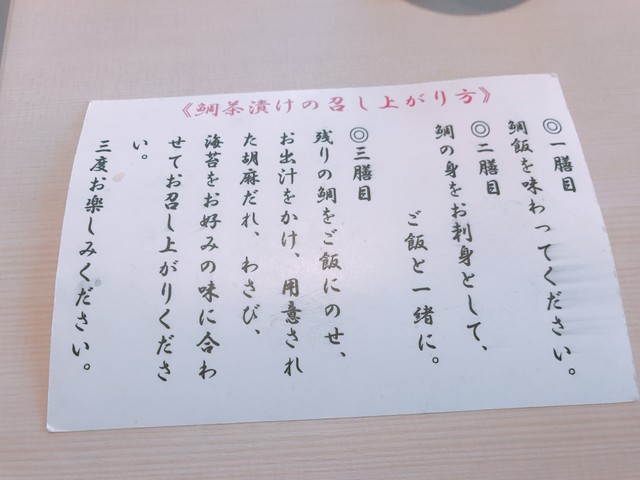 《鯛茶漬けの召し上がり方》
◎一膳目
鯛飯を味わってください。
◎二膳目
鯛の身をお刺身として、
ご飯と一緒に。
◎三膳目
残りの鯛をご飯にのせ、
お出汁をかけ、用意され
た胡麻だれ、わさび、
海苔をお好みの味に合わ
せてお召し上がりくださ
い。
三度お楽しみください。